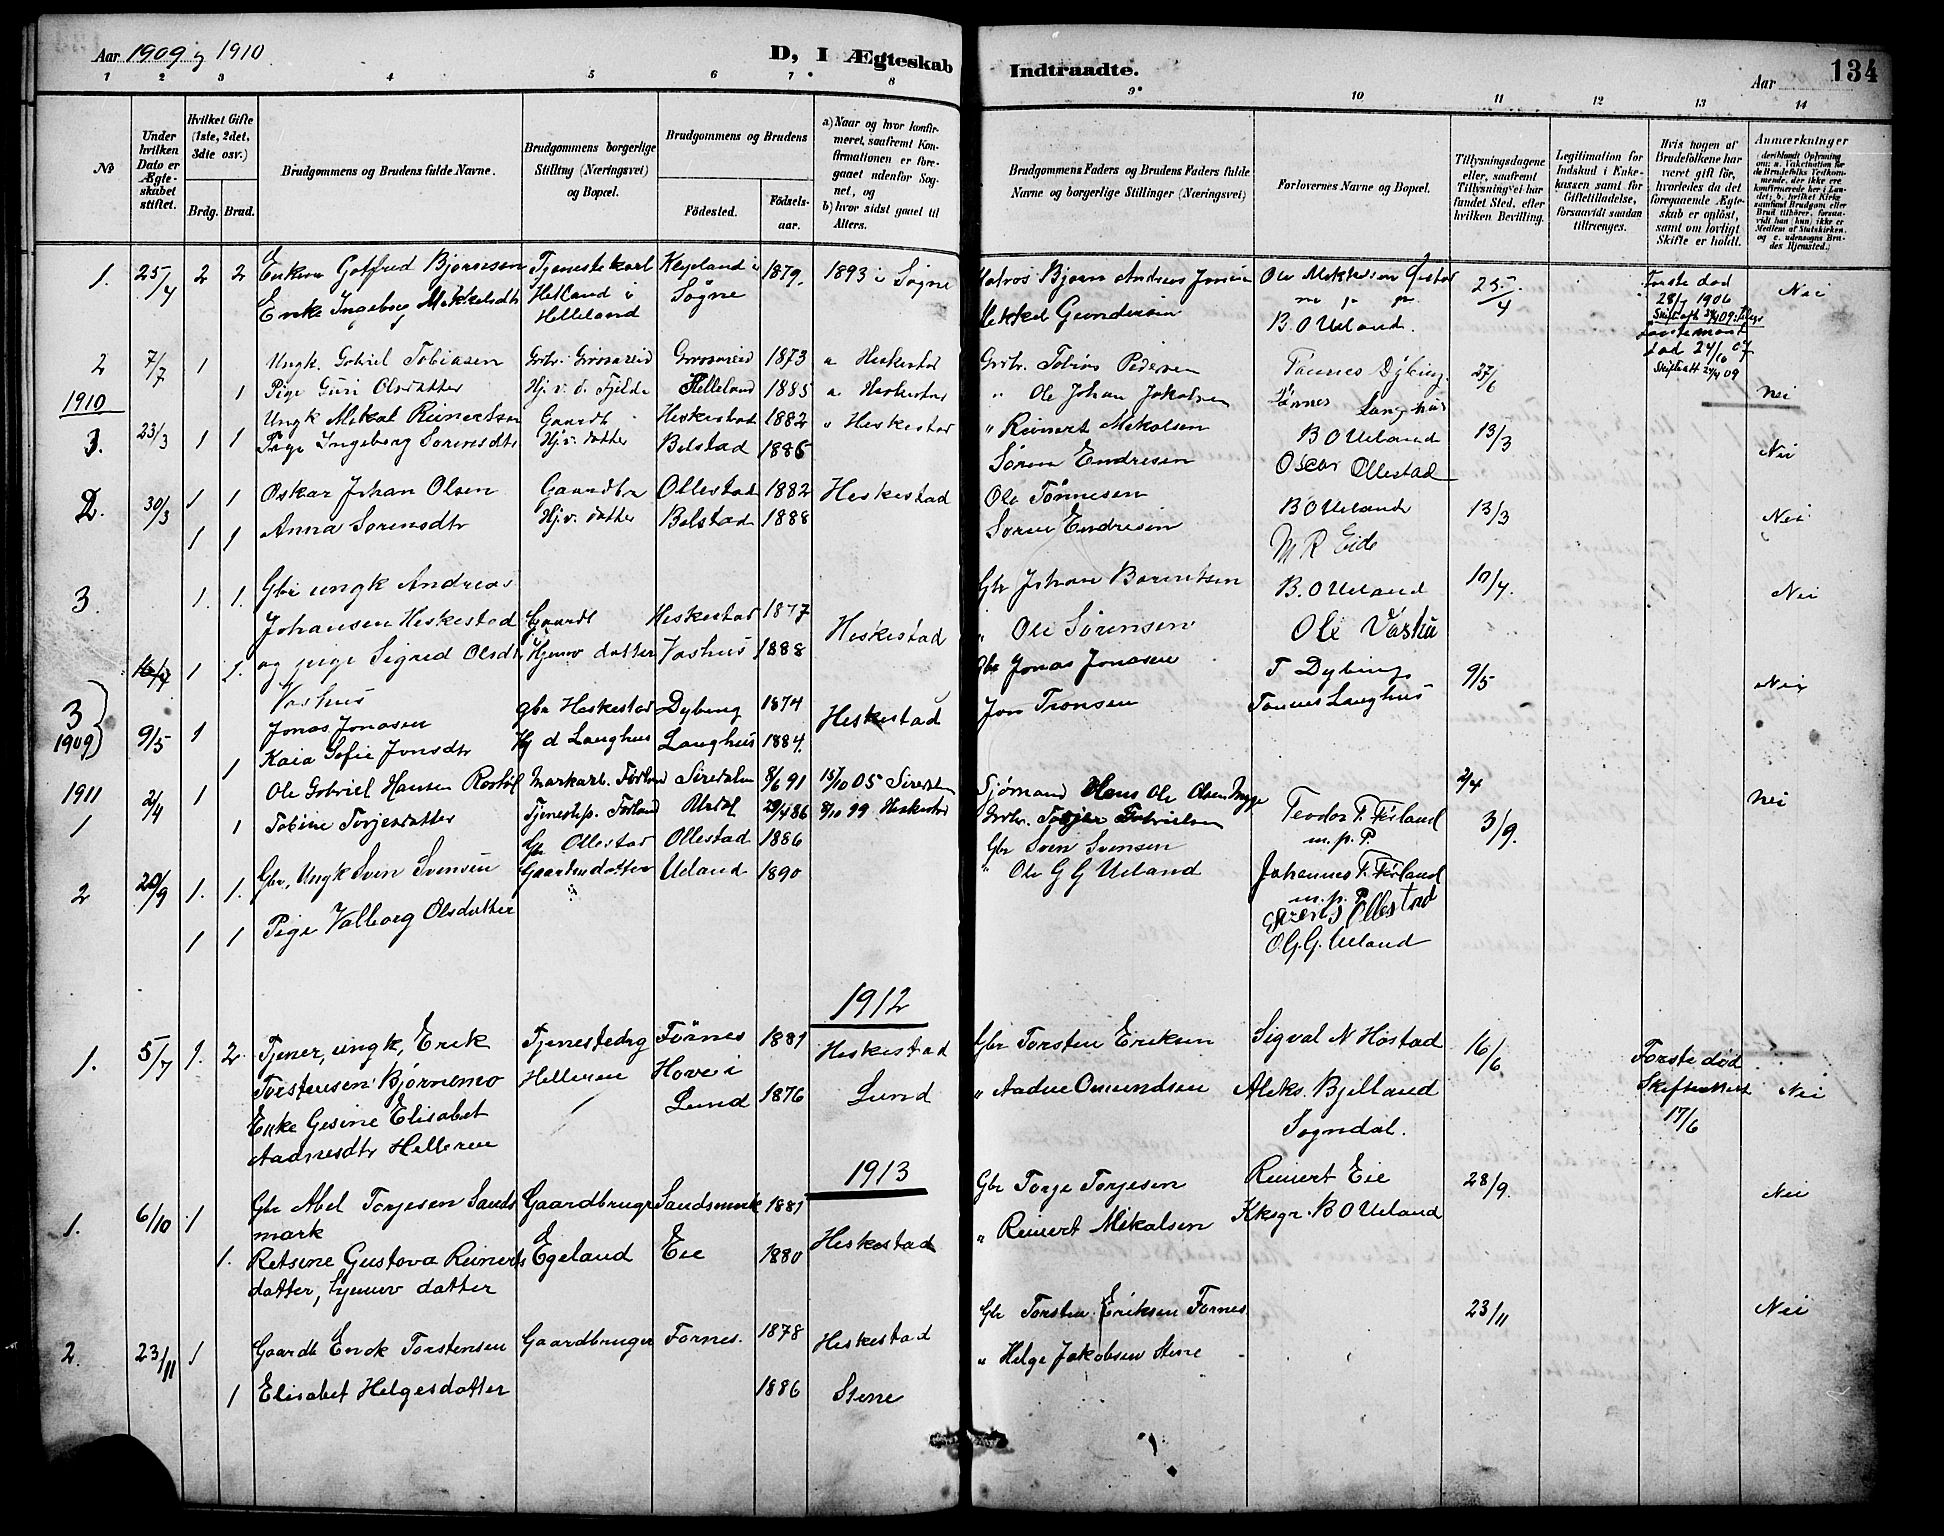 Aar 1909 og 1910
D, I Ægteskab Indtraadte.
Aar
134
1 2 3 4 5 6 7 8 9 10 11 12 13 14
No
Under hvilken Dato er Ægteskabet stiftet.
Hvilket Gifte (1ste, 2det, 3die osv.)
Brdg. Brud.
Brudgommens og Brudens fulde Navne.
Brudgommens borgerlige Stilling (Næringsvei) og Bopæl.
Brudgommens og Brudens
Fødested. Fødselsaar.
a) Naar og hvor konfirmeret, saafremt Konfirmationen er foregaaet udenfor Sognet, og
b) hvor sidst gaaet til Alters.
Brudgommens Faders og Brudens Faders fulde Navne og borgerlige Stillinger (Næringsvei)
Forlovernes Navne og Bopæl.
Tillysningsdagene eller, saafremt Tillysning ei har fundet Sted, efter hvilken Bevilling.
Legitimation for Indskud i Enkekassen samt for Giftetilladelse, forsaavidt saadan tiltrænges.
Hvis nogen af Brudefolkene har været gift før, hvorledes da det foregaaende Ægteskab er opløst, samt om lovligt Skifte er holdt.
Anmærkninger
1. 25/4 2 2 Enkem Gotfred Bjørnsen Tjenestekarl Kegeland i 1879. 1893 i Søgne
Enke Ingeborg Mikkelsdtr Hetland i Helleland Søgne
Matros Bjørn Andreas Jonsen
Mekkel Gundersen
B O Ueland.
25/4
Første død
28/7 1906
Nei
2 7/7 1 Ungk. Gabriel Tobiasen Grbr. Grosareid Grosareid 1873 a Heskestad
1 Pige Guri Olsdatter Hj. v. d. Fjelde Helleland 1885 a Heskestad
Grbr. Tobias Pedersen Tønnes Dybing. 27/6
" Ole Johan Jakobsen Tønnes Langhus
Nei
1910
3. 23/3 1 1 Ungk Mikal Reinertsen Gaardb Heskestad 1882 " Heskestad
Pige Ingeborg Sørensdtr Hj. v. datter Belstad 1886
" Reinert Mikalsen B O Ueland 13/3
Søren Endresen Oscar Ollestad
Nei
2. 30/3 1 1 Oskar Johan Olsen Gaardbr Ollestad 1882 Heskestad
1 1 Anna Sørensdtr Hj. v. datter Belstad 1888
Ole Tønnesen B O Ueland 13/3
Søren Endresen M R Eide
Nei
3. 1. 1. Gbr ungk Andreas
Johansen Heskestad Gaardb Heskestad 1877 Heskestad
16/4 1 1. og pige Sigred Olsdtr Hjemv datter Vashus 1888
Vashus
Gbr Johan Berentsen B. O Ueland 10/4.
" Ole Sørensen Ole Vashus
Nei
3 1909) 9/5 1 Jonas Jonasen gbr Heskestad Dybing 1874 Heskestad
1 Kaia Sofie Jonsdtr Hj d Langhus Langhus 1884.
Gbr Jonas Jonasen T Dybing 9/5
Jon Tronsen Tønnes Langhus
Nei
1911
1 2/4 1 Ole Gabriel Hansen Røstøl Markarb. Førland Siredalen 8/6 91 15/10 05 Siredalen
1 Tobine Torjesdatter Tjenestep. Førland Ulsdal 29/4 86 8/10 99 Heskestad
Sjømand Hans Ole Olsen
Teodor T. Førland m. p. P. 2/4
Johannes T. Førland m. p. P.
nei
2 20/9 1. 1. Gbr, Ungk Sven Svensen Gbr Ollestad Ollestad 1886
1 1 Pige Valborg Olsdatter Gaardmdatter Ueland 1890
Gbr Sven Svensen
" Ole G G Ueland
3/9.
Ollestad
O. G. G. Ueland
1912
1. 5/7 1. 2. Tjener, ungk, Erik Tjenestedrg Førnes 1881 Heskestad
Torstensen Bjørnemo Helleren Hove i
Enke Gesine Elisabet Lund 1876 Lund
Aadnesdtr Helleren
Gbr Torsten Eriksen Sigval N Høstad 16/6 Første død
" Aadne Omundsen Aleks. Bjelland Skifteattest
Sogndal. 17/6
Nei
1913
1. 6/10 1 Gbr Abel Torjesen Sands Gaardbruger Sandsmark 1881
mark Heskestad
1. Retsine Gustava Reinerts Egeland Eie 1880
datter, hjemv datter
Gbr Torje Torjesen Reinert Eie 28/9.
" Reinert Mikalsen Kksgr. B O Ueland
Nei
2. 23/11 1 Gaardb Enok Torstensen Gaardbruger Førnes. 1878 Heskestad
1 Elisabet Helgesdatter 1886 Stene
Gbr Torsten Eriksen Førnes 23/11
" Helge Jakobsen Stene
Nei